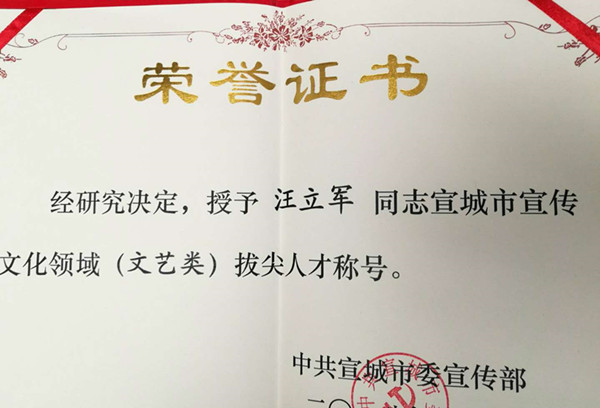 荣誉证书
经研究决定，授予 汪立军 同志宣城市宣传
文化领域（文艺类）拔尖人才称号。
中共宣城市委宣传部
二〇